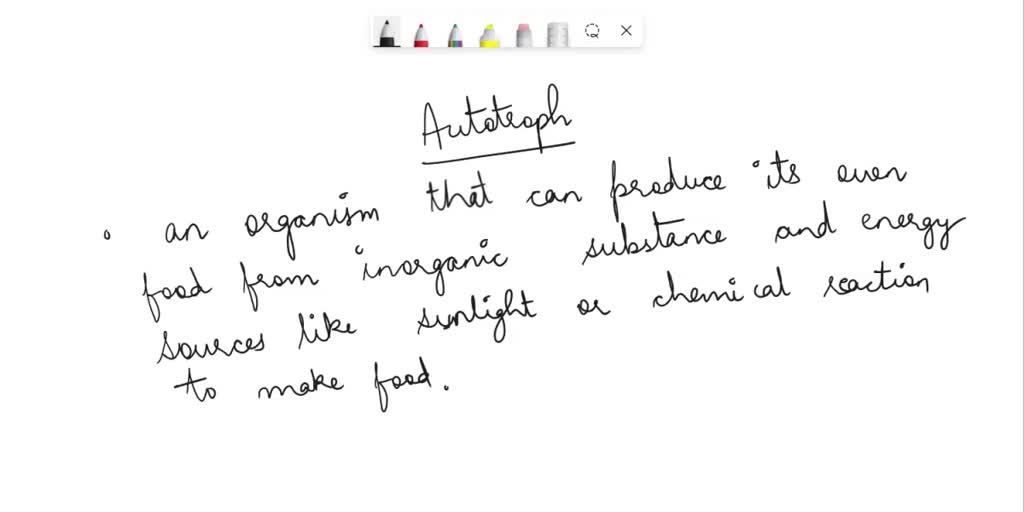 Autotroph
• an organism that can produce its own
food from inorganic substance and energy
sources like sunlight or chemical reaction
to make food.